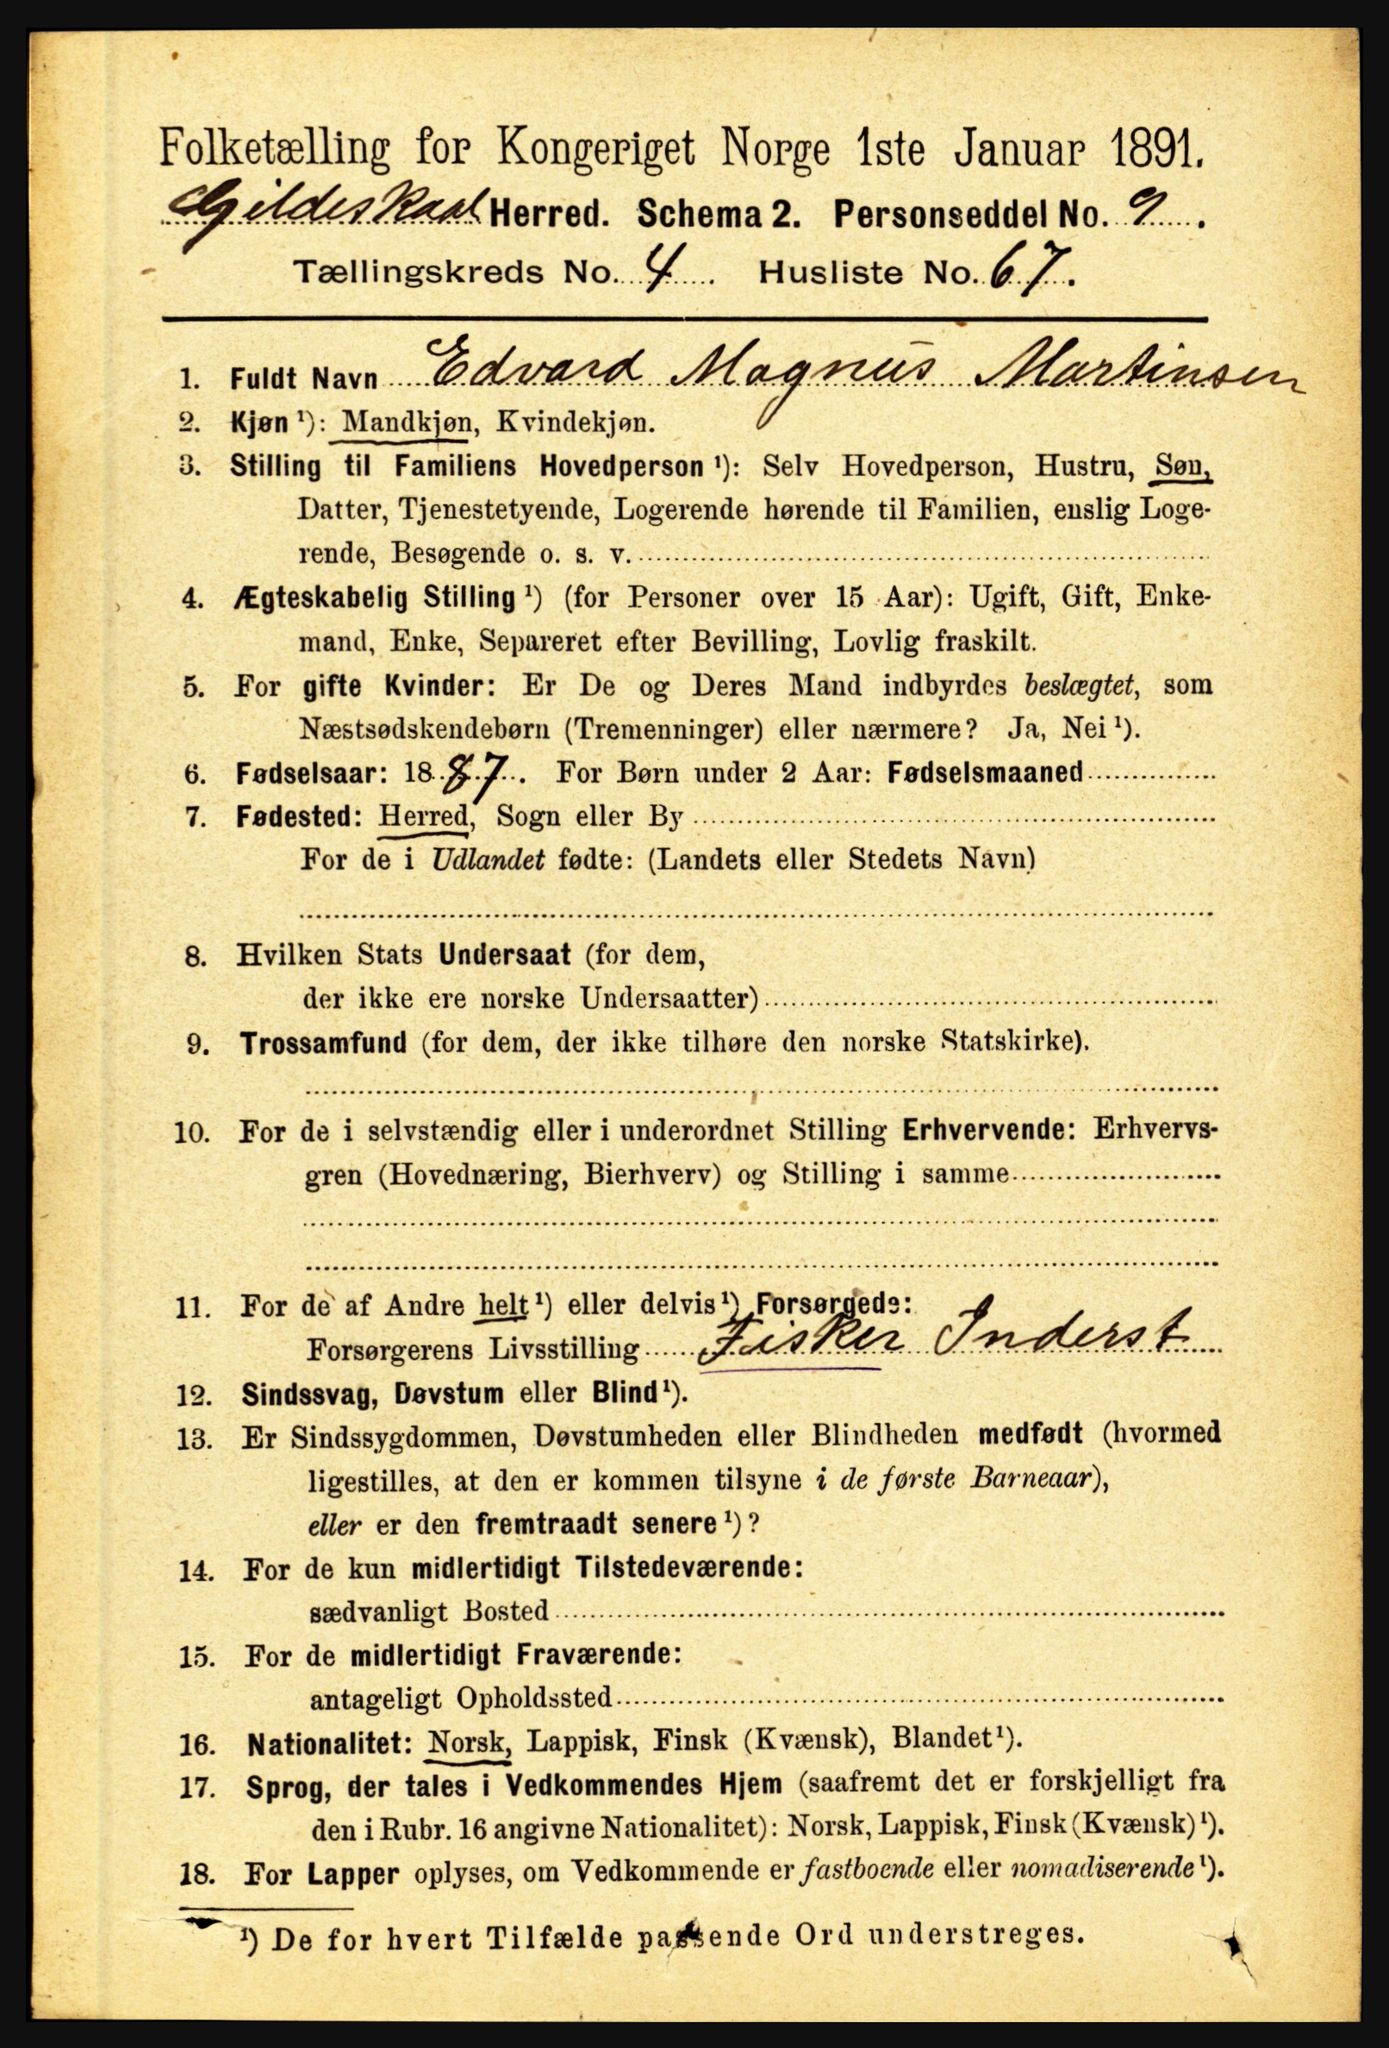 Folketælling for Kongeriget Norge 1ste Januar 1891.
Gildeskaal Herred. Schema 2. Personseddel No. 9.
Tællingskreds No. 4. Husliste No. 67.
1. Fuldt Navn Edvard Magnus Martinsen
2. Kjøn ¹): Mandkjøn, Kvindekjøn.
3. Stilling til Familiens Hovedperson ¹): Selv Hovedperson, Hustru, Søn,
Datter, Tjenestetyende, Logerende hørende til Familien, enslig Loge-
rende, Besøgende o. s. v.
4. Ægteskabelig Stilling ¹) (for Personer over 15 Aar): Ugift, Gift, Enke-
mand, Enke, Separeret efter Bevilling, Lovlig fraskilt.
5. For gifte Kvinder: Er De og Deres Mand indbyrdes beslægtet, som
Næstsødskendebørn (Tremenninger) eller nærmere? Ja, Nei ¹).
6. Fødselsaar: 1887. For Børn under 2 Aar: Fødselsmaaned
7. Fødested: Herred, Sogn eller By
For de i Udlandet fødte: (Landets eller Stedets Navn)
8. Hvilken Stats Undersaat (for dem,
der ikke ere norske Undersaatter)
9. Trossamfund (for dem, der ikke tilhøre den norske Statskirke).
10. For de i selvstændig eller i underordnet Stilling Erhvervende: Erhvervs-
gren (Hovednæring, Bierhverv) og Stilling i samme
11. For de af Andre helt ¹) eller delvis ¹) Forsørgede:
Forsørgerens Livsstilling Fisker Inderst
12. Sindssvag, Døvstum eller Blind ¹).
13. Er Sindssygdommen, Døvstumheden eller Blindheden medfødt (hvormed
ligestilles, at den er kommen tilsyne i de første Barneaar),
eller er den fremtraadt senere ¹)?
14. For de kun midlertidigt Tilstedeværende:
sædvanligt Bosted
15. For de midlertidigt Fraværende:
antageligt Opholdssted
16. Nationalitet: Norsk, Lappisk, Finsk (Kvænsk), Blandet ¹).
17. Sprog, der tales i Vedkommendes Hjem (saafremt det er forskjelligt fra
den i Rubr. 16 angivne Nationalitet): Norsk, Lappisk, Finsk (Kvænsk) ¹).
18. For Lapper oplyses, om Vedkommende er fastboende eller nomadiserende ¹).
¹) De for hvert Tilfælde passende Ord understreges.